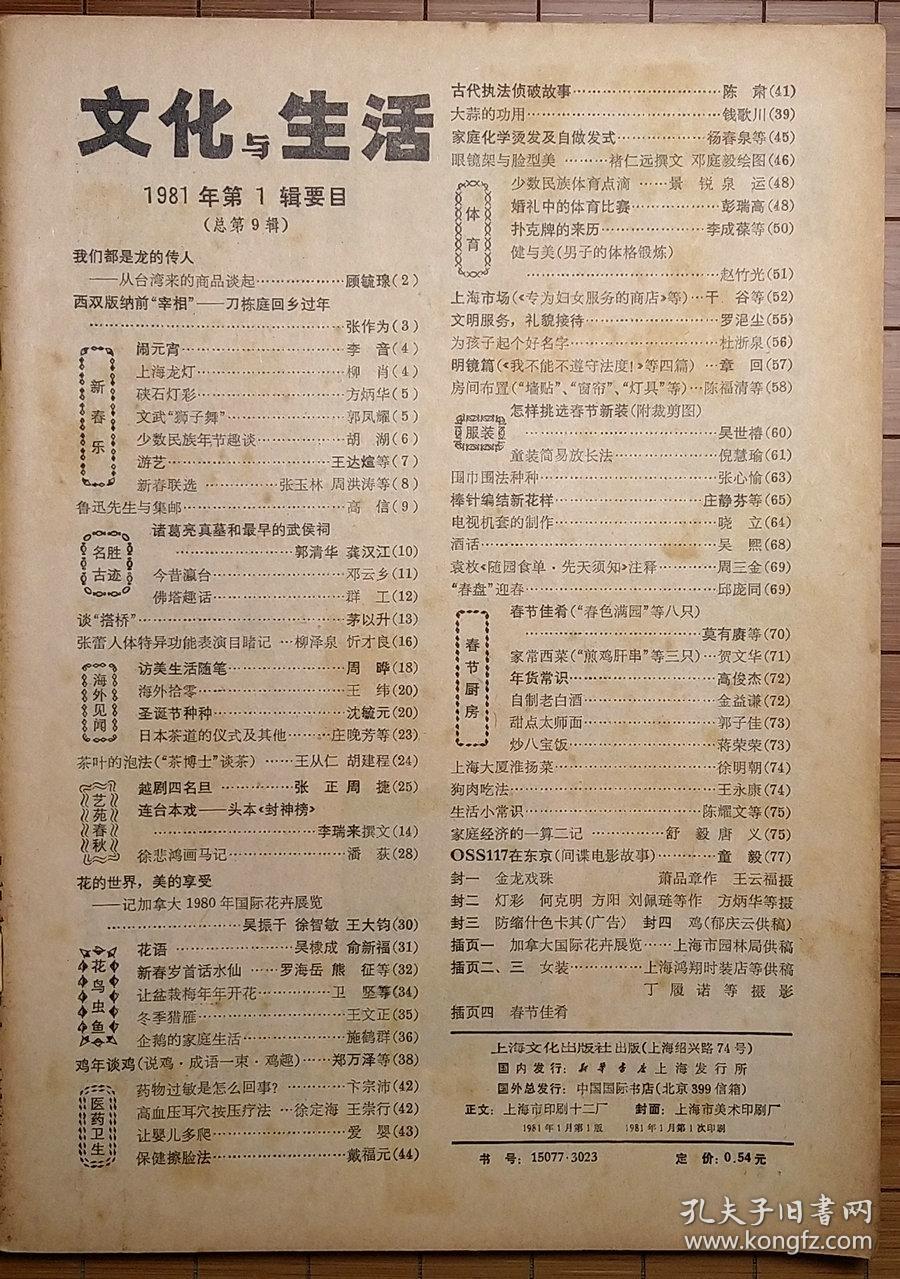 文化与生活
1981年第1辑要目
(总第9辑)
我们都是龙的传人
——从台湾来的商品谈起……顾毓瑔(2)
西双版纳前“宰相”——刀栋庭回乡过年
……张作为(3)
新春乐
闹元宵……李 音(4)
上海龙灯……柳 肖(4)
硖石灯彩……方炳华(5)
文武“狮子舞”……郭凤耀(5)
少数民族年节趣谈……胡 湖(6)
游艺……王达煊等(7)
新春联选……张玉林 周洪涛等(8)
鲁迅先生与集邮……高 信(9)
名胜古迹
诸葛亮真墓和最早的武侯祠
……郭清华 龚汉江(10)
今昔瀛台……邓云乡(11)
佛塔趣话……群 工(12)
谈“搭桥”……茅以升(13)
张蕾人体特异功能表演目睹记…柳泽泉 忻才良(16)
海外见闻
访美生活随笔……周 晔(18)
海外拾零……王 纬(20)
圣诞节种种……沈毓元(20)
日本茶道的仪式及其他……庄晚芳等(23)
茶叶的泡法(“茶博士”谈茶)……王从仁 胡建程(24)
艺苑春秋
越剧四名旦……张 正 周 捷(25)
连台本戏——头本《封神榜》
……李瑞来撰文(14)
徐悲鸿画马记……潘 荻(28)
花的世界，美的享受
——记加拿大1980年国际花卉展览
……吴振千 徐智敏 王大钧(30)
花鸟虫鱼
花语……吴棣成 俞新福(31)
新春岁首话水仙……罗海岳 熊 征等(32)
让盆栽梅年年开花……卫 坚等(34)
冬季猎雁……王文正(35)
企鹅的家庭生活……施鹤群(36)
鸡年谈鸡(说鸡·成语一束·鸡趣)……郑万泽等(38)
医药卫生
药物过敏是怎么回事?……卞宗沛(42)
高血压耳穴按压疗法…徐定海 王崇行(42)
让婴儿多爬……爱 婴(43)
保健擦脸法……戴福元(44)
古代执法侦破故事……陈 肃(41)
大蒜的功用……钱歌川(39)
家庭化学烫发及自做发式……杨春泉等(45)
眼镜架与脸型美……褚仁远撰文 邓庭毅绘图(46)
体育
少数民族体育点滴……景 锐 泉 运(48)
婚礼中的体育比赛……彭瑞高(48)
扑克牌的来历……李成葆等(50)
健与美(男子的体格锻炼)
……赵竹光(51)
上海市场(《专为妇女服务的商店》等)…干 谷等(52)
文明服务，礼貌接待……罗浥尘(55)
为孩子起个好名字……杜浙泉(56)
明镜篇(《我不能不遵守法度!》等四篇)…章 回(57)
房间布置(“墙贴”、“窗帘”、“灯具”等)…陈福清等(58)
服装
怎样挑选春节新装(附裁剪图)
……吴世椿(60)
童装简易放长法……倪慧瑜(61)
围巾围法种种……张心愉(63)
棒针编结新花样……庄静芬等(65)
电视机套的制作……晓 立(64)
酒话……吴 熙(68)
袁枚《随园食单·先天须知》注释……周三金(69)
“春盘”迎春……邱庞同(69)
春节厨房
春节佳肴(“春色满园”等八只)
……莫有赓等(70)
家常西菜(“煎鸡肝串”等三只)…贺文华(71)
年货常识……高俊杰(72)
自制老白酒……金益谦(72)
甜点太师面……郭子佳(73)
炒八宝饭……蒋荣荣(73)
上海大厦淮扬菜……徐明朝(74)
狗肉吃法……王永康(74)
生活小常识……陈耀文等(75)
家庭经济的一算二记……舒 毅 唐 义(75)
OSS117在东京(间谍电影故事)……童 毅(77)
封一 金龙戏珠 萧品章作 王云福摄
封二 灯彩 何克明 方阳 刘佩琏等作 方炳华等摄
封三 防缩什色卡其(广告) 封四 鸡(郁庆云供稿)
插页一 加拿大国际花卉展览……上海市园林局供稿
插页二、三 女装……上海鸿翔时装店等供稿
丁履诺等摄影
插页四 春节佳肴
上海文化出版社出版(上海绍兴路74号)
国内发行：新华书店上海发行所
国外总发行：中国国际书店(北京399信箱)
正文：上海市印刷十二厂 封面：上海市美术印刷厂
1981年1月第1版 1981年1月第1次印刷
书号：15077·3023 定价：0.54元
孔夫子旧书网
www.kongfz.com